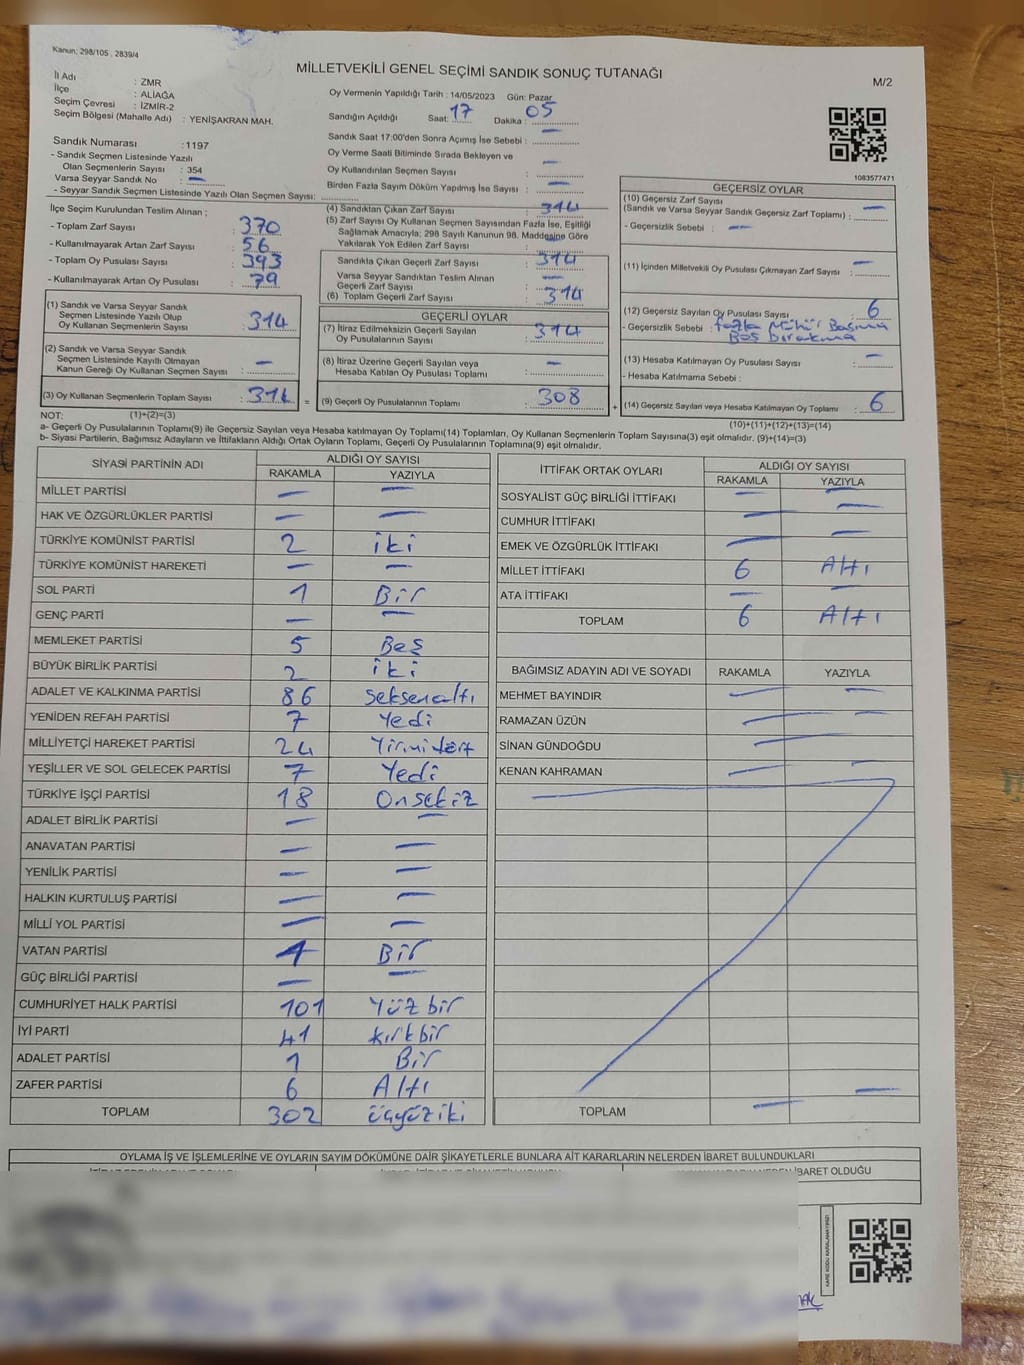 Kanun; 298/105 , 2839/4
MİLLETVEKİLİ GENEL SEÇİMİ SANDIK SONUÇ TUTANAĞI
M/2
İl Adı : ZMR
İlçe : ALİAĞA
Seçim Çevresi : İZMİR-2
Seçim Bölgesi (Mahalle Adı) : YENİŞAKRAN MAH.
Sandık Numarası :1197
- Sandık Seçmen Listesinde Yazılı
Olan Seçmenlerin Sayısı : 354
Varsa Seyyar Sandık No : —
- Seyyar Sandık Seçmen Listesinde Yazılı Olan Seçmen Sayısı:
Oy Vermenin Yapıldığı Tarih : 14/05/2023 Gün: Pazar
Sandığın Açıldığı Saat: 17 Dakika : 05
Sandık Saat 17:00'den Sonra Açımış İse Sebebi : —
Oy Verme Saati Bitiminde Sırada Bekleyen ve
Oy Kullandırılan Seçmen Sayısı : —
Birden Fazla Sayım Döküm Yapılmış İse Sayısı : —
1083577471
İlçe Seçim Kurulundan Teslim Alınan ;
- Toplam Zarf Sayısı : 370
- Kullanılmayarak Artan Zarf Sayısı : 56
- Toplam Oy Pusulası Sayısı : 393
- Kullanılmayarak Artan Oy Pusulası : 79
(1) Sandık ve Varsa Seyyar Sandık
Seçmen Listesinde Yazılı Olup
Oy Kullanan Seçmenlerin Sayısı : 314
(2) Sandık ve Varsa Seyyar Sandık
Seçmen Listesinde Kayıtlı Olmayan
Kanun Gereği Oy Kullanan Seçmen Sayısı : —
(3) Oy Kullanan Seçmenlerin Toplam Sayısı : 314 =
(4) Sandıktan Çıkan Zarf Sayısı : 314
(5) Zarf Sayısı Oy Kullanan Seçmen Sayısından Fazla İse, Eşitliği
Sağlamak Amacıyla; 298 Sayılı Kanunun 98. Maddesine Göre
Yakılarak Yok Edilen Zarf Sayısı : —
Sandıkta Çıkan Geçerli Zarf Sayısı : 314
Varsa Seyyar Sandıktan Teslim Alınan
Geçerli Zarf Sayısı : —
(6) Toplam Geçerli Zarf Sayısı : 314
GEÇERLİ OYLAR
(7) İtiraz Edilmeksizin Geçerli Sayılan
Oy Pusulalarının Sayısı : 314
(8) İtiraz Üzerine Geçerli Sayılan veya
Hesaba Katılan Oy Pusulası Toplamı : —
(9) Geçerli Oy Pusulalarının Toplamı : 308 +
GEÇERSİZ OYLAR
(10) Geçersiz Zarf Sayısı
(Sandık ve Varsa Seyyar Sandık Geçersiz Zarf Toplamı) : —
- Geçersizlik Sebebi : —
(11) İçinden Milletvekili Oy Pusulası Çıkmayan Zarf Sayısı : —
(12) Geçersiz Sayılan Oy Pusulası Sayısı : 6
- Geçersizlik Sebebi : fazla Mühür Basma
Boş bırakma
(13) Hesaba Katılmayan Oy Pusulası Sayısı : —
- Hesaba Katılmama Sebebi :
(14) Geçersiz Sayılan veya Hesaba Katılmayan Oy Toplamı : 6
NOT: (1)+(2)=(3)
(10)+(11)+(12)+(13)=(14)
a- Geçerli Oy Pusulalarının Toplamı(9) ile Geçersiz Sayılan veya Hesaba katılmayan Oy Toplamı(14) Toplamları, Oy Kullanan Seçmenlerin Toplam Sayısına(3) eşit olmalıdır. (9)+(14)=(3)
b- Siyasi Partilerin, Bağımsız Adayların ve İttifakların Aldığı Ortak Oyların Toplamı, Geçerli Oy Pusulalarının Toplamına(9) eşit olmalıdır.
SİYASİ PARTİNİN ADI ALDIĞI OY SAYISI
RAKAMLA YAZIYLA
MİLLET PARTİSİ — —
HAK VE ÖZGÜRLÜKLER PARTİSİ — —
TÜRKİYE KOMÜNİST PARTİSİ 2 iki
TÜRKİYE KOMÜNİST HAREKETİ — —
SOL PARTİ 1 Bir
GENÇ PARTİ — —
MEMLEKET PARTİSİ 5 Beş
BÜYÜK BİRLİK PARTİSİ 2 iki
ADALET VE KALKINMA PARTİSİ 86 seksenaltı
YENİDEN REFAH PARTİSİ 7 Yedi
MİLLİYETÇİ HAREKET PARTİSİ 24 Yirmidört
YEŞİLLER VE SOL GELECEK PARTİSİ 7 Yedi
TÜRKİYE İŞÇİ PARTİSİ 18 Onsekiz
ADALET BİRLİK PARTİSİ — —
ANAVATAN PARTİSİ — —
YENİLİK PARTİSİ — —
HALKIN KURTULUŞ PARTİSİ — —
MİLLİ YOL PARTİSİ — —
VATAN PARTİSİ 1 Bir
GÜÇ BİRLİĞİ PARTİSİ — —
CUMHURİYET HALK PARTİSİ 101 Yüzbir
İYİ PARTİ 41 kırkbir
ADALET PARTİSİ 1 Bir
ZAFER PARTİSİ 6 Altı
TOPLAM 302 üçyüziki
İTTİFAK ORTAK OYLARI ALDIĞI OY SAYISI
RAKAMLA YAZIYLA
SOSYALİST GÜÇ BİRLİĞİ İTTİFAKI — —
CUMHUR İTTİFAKI — —
EMEK VE ÖZGÜRLÜK İTTİFAKI — —
MİLLET İTTİFAKI 6 Altı
ATA İTTİFAKI — —
TOPLAM 6 Altı
BAĞIMSIZ ADAYIN ADI VE SOYADI RAKAMLA YAZIYLA
MEHMET BAYINDIR — —
RAMAZAN ÜZÜN — —
SİNAN GÜNDOĞDU — —
KENAN KAHRAMAN — —
TOPLAM — —
OYLAMA İŞ VE İŞLEMLERİNE VE OYLARIN SAYIM DÖKÜMÜNE DAİR ŞİKAYETLERLE BUNLARA AİT KARARLARIN NELERDEN İBARET BULUNDUKLARI
İBARET OLDUĞU